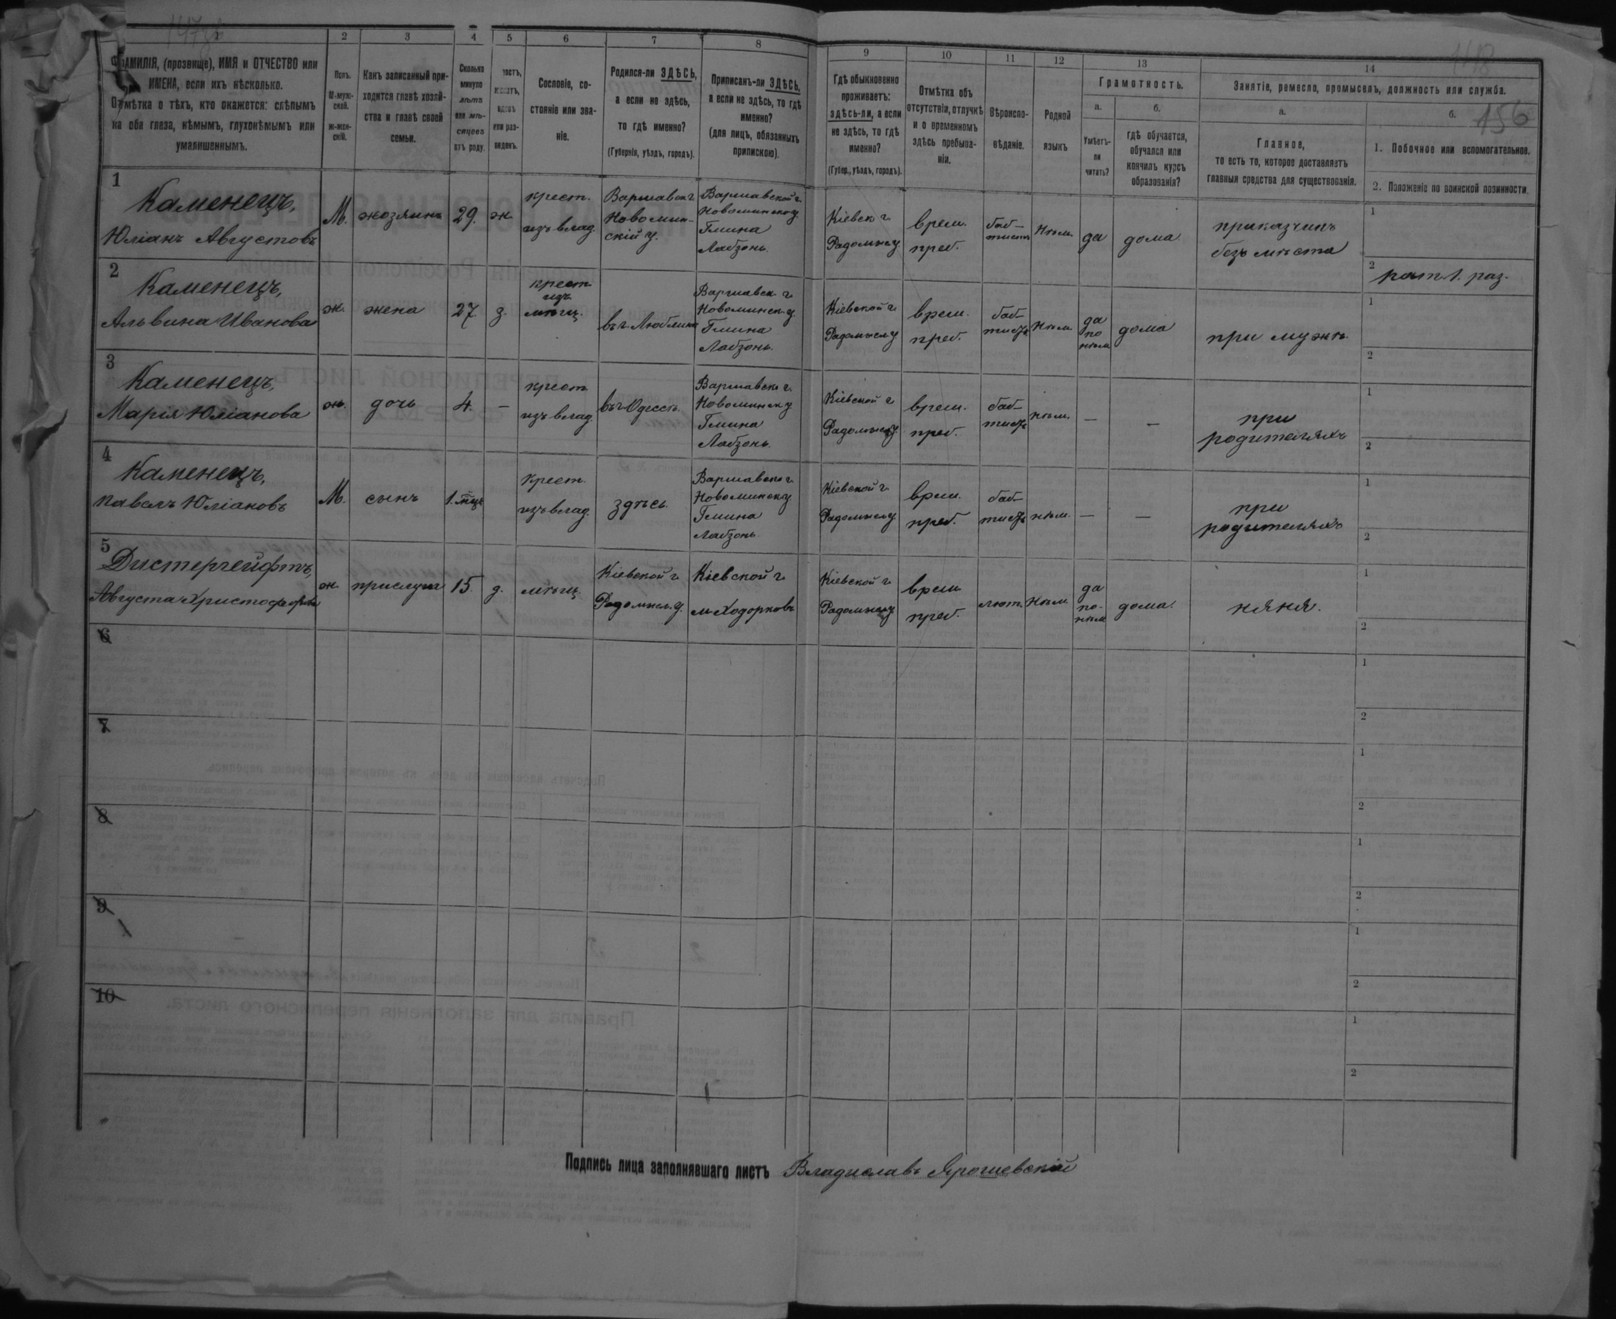 1 2 3 4 5 6 7 8 9 10 11 12 13 14
ФАМИЛІЯ, (прозвище), ИМЯ и ОТЧЕСТВО или
ИМЕНА, если ихъ нѣсколько.
Отмѣтка о тѣхъ, кто окажется: слѣпымъ
на оба глаза, нѣмымъ, глухонѣмымъ или
умалишеннымъ.
Полъ.
М-мужской.
ж-женскій.
Какъ записанный при-
ходится главѣ хозяй-
ства и главѣ своей
семьи.
Сколько
минуло
лѣтъ
или мѣ-
сяцевъ
отъ роду.
Сословіе, со-
стояніе или зва-
ніе.
Родился-ли ЗДѢСЬ,
а если не здѣсь,
то гдѣ именно?
(Губернія, уѣздъ, городъ).
Приписанъ-ли ЗДѢСЬ,
а если не здѣсь, то гдѣ
именно?
(для лицъ, обязанныхъ
припискою).
Гдѣ обыкновенно
проживаетъ:
здѣсь-ли, а если
не здѣсь, то гдѣ
именно?
(Губер., уѣздъ, городъ).
Отмѣтка объ
отсутствіи, отлучкѣ
и о временномъ
здѣсь пребыва-
ніи.
Вѣроиспо-
вѣданіе.
Родной
языкъ
Грамотность.
а.
Умѣетъ-
ли
читать?
б.
гдѣ обучается,
обучался или
кончилъ курсъ
образованія?
Занятіе, ремесло, промыселъ, должность или служба.
а.
Главное,
то есть то, которое доставляетъ
главныя средства для существованія.
б.
156
1. Побочное или вспомогательное.
2. Положеніе по воинской повинности.
1
Каменецъ,
Юліанъ Августовъ
М.
хозяинъ
29.
ж.
крест.
изъ влад.
Варшавск г
Новомин-
скій у.
Варшавской г.
Новоминск у
Гмина
Ладзонь
Кіевск г.
Радомысл у
врем.
преб.
баб-
тистъ
нѣм.
да
дома
приказчикъ
безъ мѣста
1
2 рат. 1. раз.
2
Каменецъ,
Альвина Иванова
ж.
жена
27
з.
крест
изъ
мѣщ.
въ г. Люблинѣ
Варшавск. г.
Новоминск. у
Гмина
Ладзонь
Кіевской г.
Радомысл у
врем.
преб.
баб-
тистк
нѣм.
да
по
нѣм
дома
при мужѣ.
1
2
3
Каменецъ,
Марія Юліанова
ж.
дочь
4.
—
крест
изъ влад.
въ г. Одессѣ
Варшавск г.
Новоминск у
Гмина
Ладзонь
Кіевской г
Радомысл у
врем.
преб.
баб-
тистк
нѣм.
—
—
при
родителяхъ
1
2
4
Каменецъ,
Павелъ Юліановъ
М.
сынъ
1. мѣц
Крест
изъ влад.
здѣсь
Варшавск г
Новоминск у
Гмина
Ладзонь
Кіевской г
Радомысл у
врем.
преб.
баб-
тистк
нѣм.
—
—
при
родителяхъ
1
2
5
Дистергейфтъ,
Августа Христофорова
ж.
прислуга
15.
д.
мѣщ.
Кіевской г
Радомысл. у.
Кіевской г.
м Ходорковъ
Кіевской г
Радомысл у
врем
преб.
лют.
нѣм
да
по-
нѣм
дома.
няня.
1
2
6
1
2
7
1
2
8
1
2
9
1
2
10
1
2
Подпись лица заполнявшаго листъ Владиславъ Ярошевскій